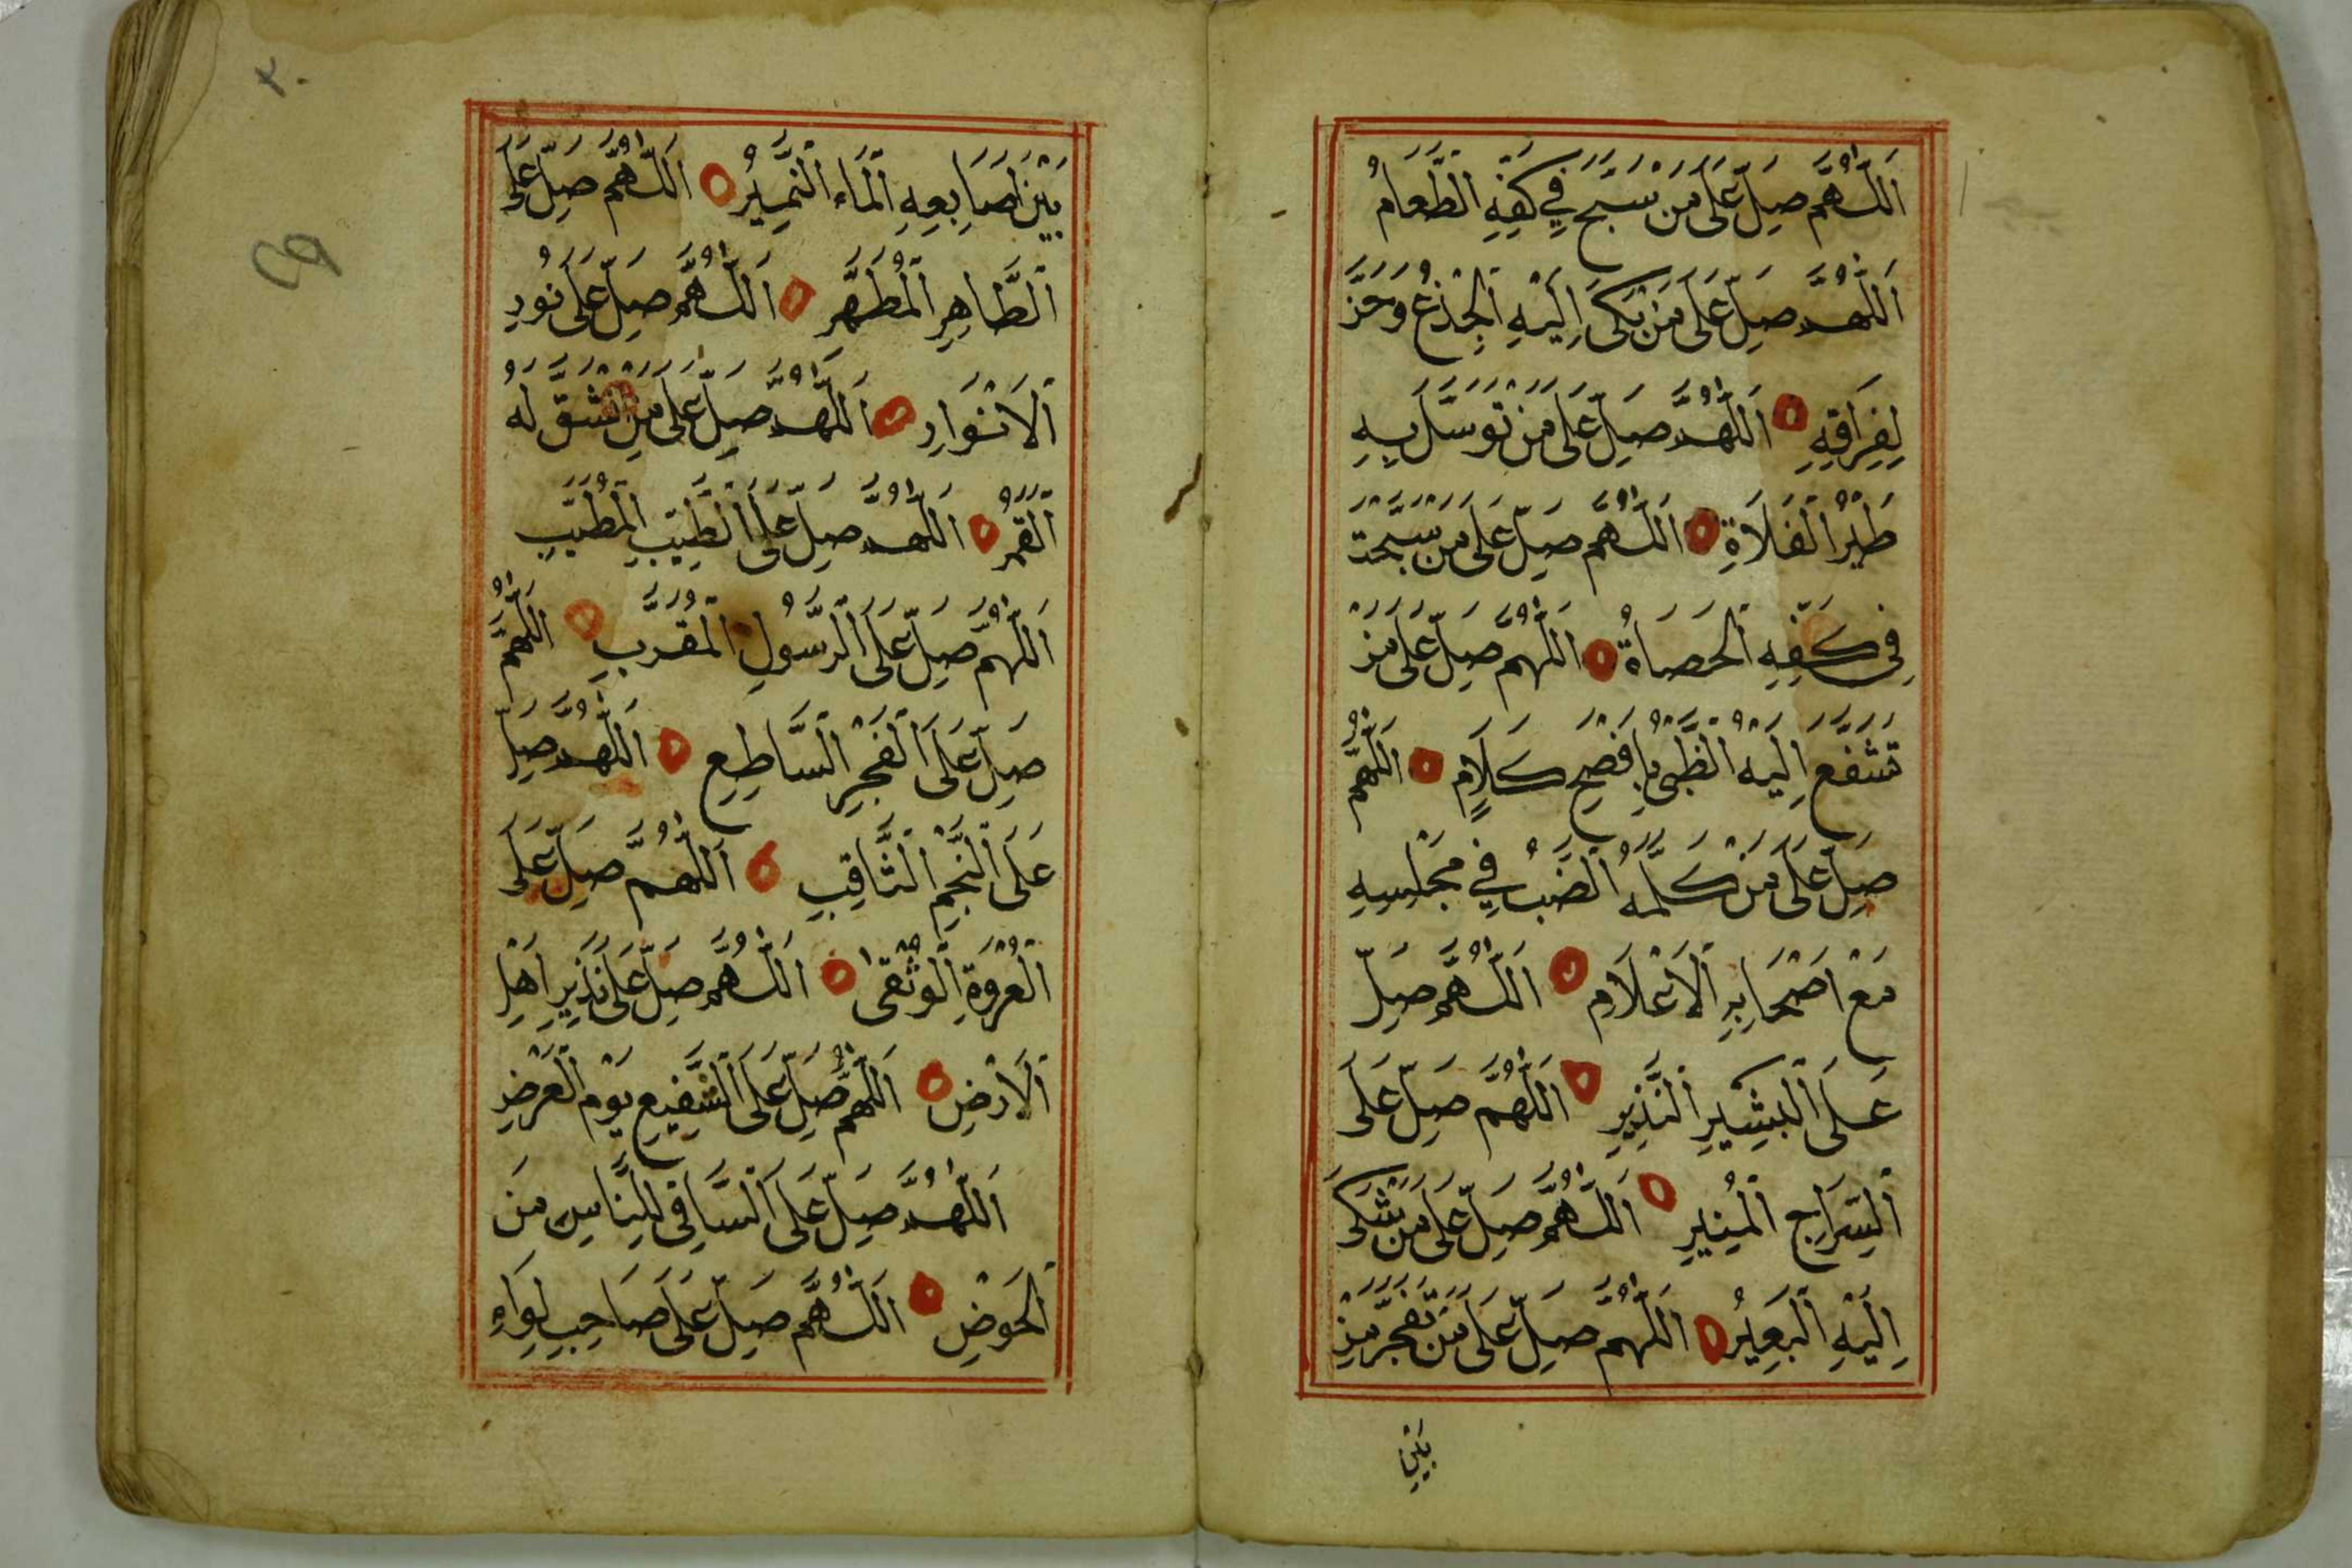 اَللّٰهُمَّ صَلِّ عَلَى مَنْ سَبَّحَ فِي كَفِّهِ الطَّعَامُ
اَللّٰهُمَّ صَلِّ عَلَى مَنْ بَكَى اِلَيْهِ الْجِذْعُ وَحَنَّ
لِفِرَاقِهِ اَللّٰهُمَّ صَلِّ عَلَى مَنْ تَوَسَّلَ بِهِ
طَيْرُ الْفَلَاةِ اَللّٰهُمَّ صَلِّ عَلَى مَنْ سَبَّحَتْ
فِي كَفِّهِ الْحَصَاةُ اَللّٰهُمَّ صَلِّ عَلَى مَنْ
تَشَفَّعَ اِلَيْهِ الظَّبْيُ بِاَفْصَحِ كَلَامٍ اَللّٰهُمَّ
صَلِّ عَلَى مَنْ كَلَّمَهُ الضَّبُّ فِي مَجْلِسِهِ
مَعْ اَصْحَابِهِ الْاَعْلَامِ اَللّٰهُمَّ صَلِّ
عَلَى الْبَشِيرِ النَّذِيرِ اَللّٰهُمَّ صَلِّ عَلَى
السِّرَاجِ الْمُنِيرِ اَللّٰهُمَّ صَلِّ عَلَى مَنْ شَكَى
اِلَيْهِ الْبَعِيرُ اَللّٰهُمَّ صَلِّ عَلَى مَنْ تَفَجَّرَ مِنْ
بَيْنِ
٢٠
بَيْنِ اَصَابِعِهِ الْمَاءُ النَّمِيرُ اَللّٰهُمَّ صَلِّ عَلَى
الطَّاهِرِ الْمُطَهَّرِ اَللّٰهُمَّ صَلِّ عَلَى نُورِ
الْاَنْوَارِ اَللّٰهُمَّ صَلِّ عَلَى مَنِ انْشَقَّ لَهُ
الْقَمَرُ اَللّٰهُمَّ صَلِّ عَلَى الطَّيِّبِ الْمُطَيَّبِ
اَللّٰهُمَّ صَلِّ عَلَى الرَّسُولِ الْمُقَرَّبِ اَللّٰهُمَّ
صَلِّ عَلَى الْفَجْرِ السَّاطِعِ اَللّٰهُمَّ صَلِّ
عَلَى النَّجْمِ الثَّاقِبِ اَللّٰهُمَّ صَلِّ عَلَى
الْعُرْوَةِ الْوُثْقٰى اَللّٰهُمَّ صَلِّ عَلَى نَذِيرِ اَهْلِ
الْاَرْضِ اَللّٰهُمَّ صَلِّ عَلَى الشَّفِيعِ يَوْمَ الْعَرْضِ
اَللّٰهُمَّ صَلِّ عَلَى السَّاقِي لِلنَّاسِ مِنَ
الْحَوْضِ اَللّٰهُمَّ صَلِّ عَلَى صَاحِبِ لِوَاءِ